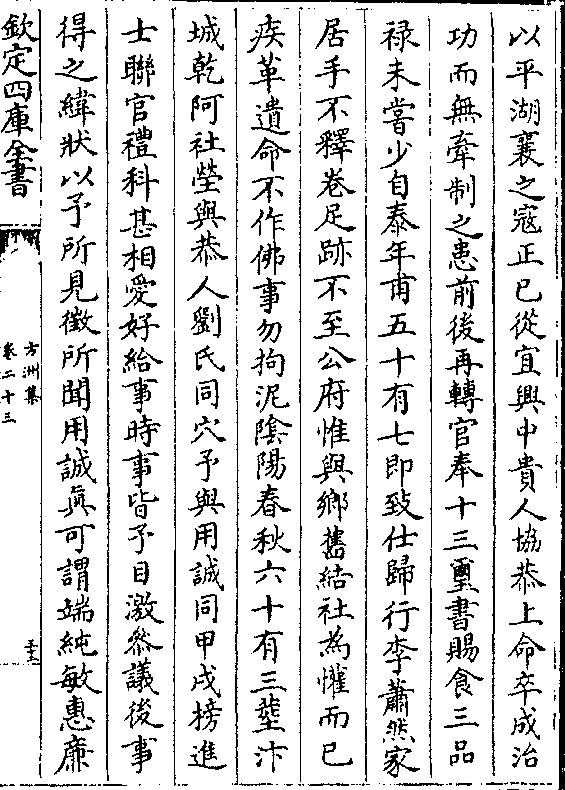 以平湖襄之寇正己從宜興中貴人協恭上命卒成治
功而無牽制之患前後再轉官奉十三璽書賜食三品
祿未嘗少自泰年甫五十有七即致仕歸行李蕭然家
居手不釋卷足跡不至公府惟與鄉舊結社為懽而已
疾革遺命不作佛事勿拘泥陰陽春秋六十有三塟汴
城乾阿社塋與恭人劉氏同穴予與用誠同甲戌榜進
士聯官禮科甚相愛好給事時事皆予目激叅議後事
得之緯狀以予所見徵所聞用誠眞可謂端純敏惠廉
欽定四庫全書
方洲集
卷二十三